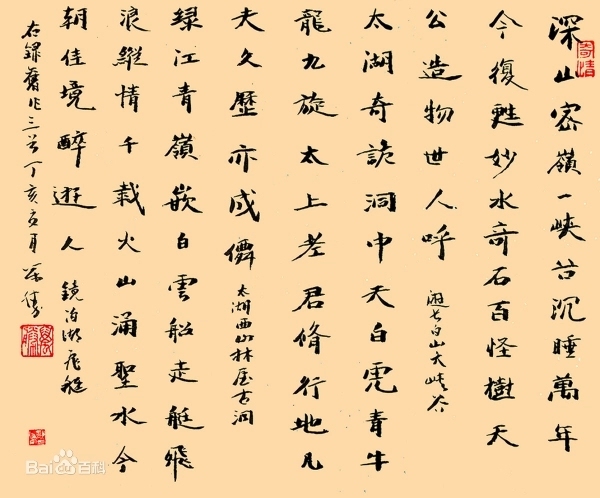 奇情
深山密嶺一峽谷沉睡萬年
今復甦妙水奇石百怪樹天
公造物世人呼 遊長白山大峽谷
太湖奇詭洞中天白虎青牛
龍九旋太上老君脩行地凡
夫久歷亦成僊 太湖西山林屋古洞
綠江青嶺嵌白雲船走艇飛
浪縱情千載火山涌聖水今
朝佳境醉遊人 鏡泊湖飛艇
右錄舊作三首丁亥夏月
Baidu百科